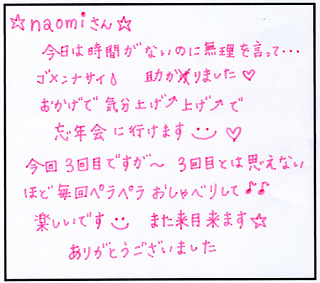 ☆naomiさん☆
今日は時間がないのに無理を言って…
ゴメンナサイ 助かりました♡
おかげで気分上げ↗上げ↗で
忘年会に行けます♡
今回3回目ですが〜 3回目とは思えない
ほど毎回ペラペラおしゃべりして♪♪
楽しいです また来月来ます☆
ありがとうございました